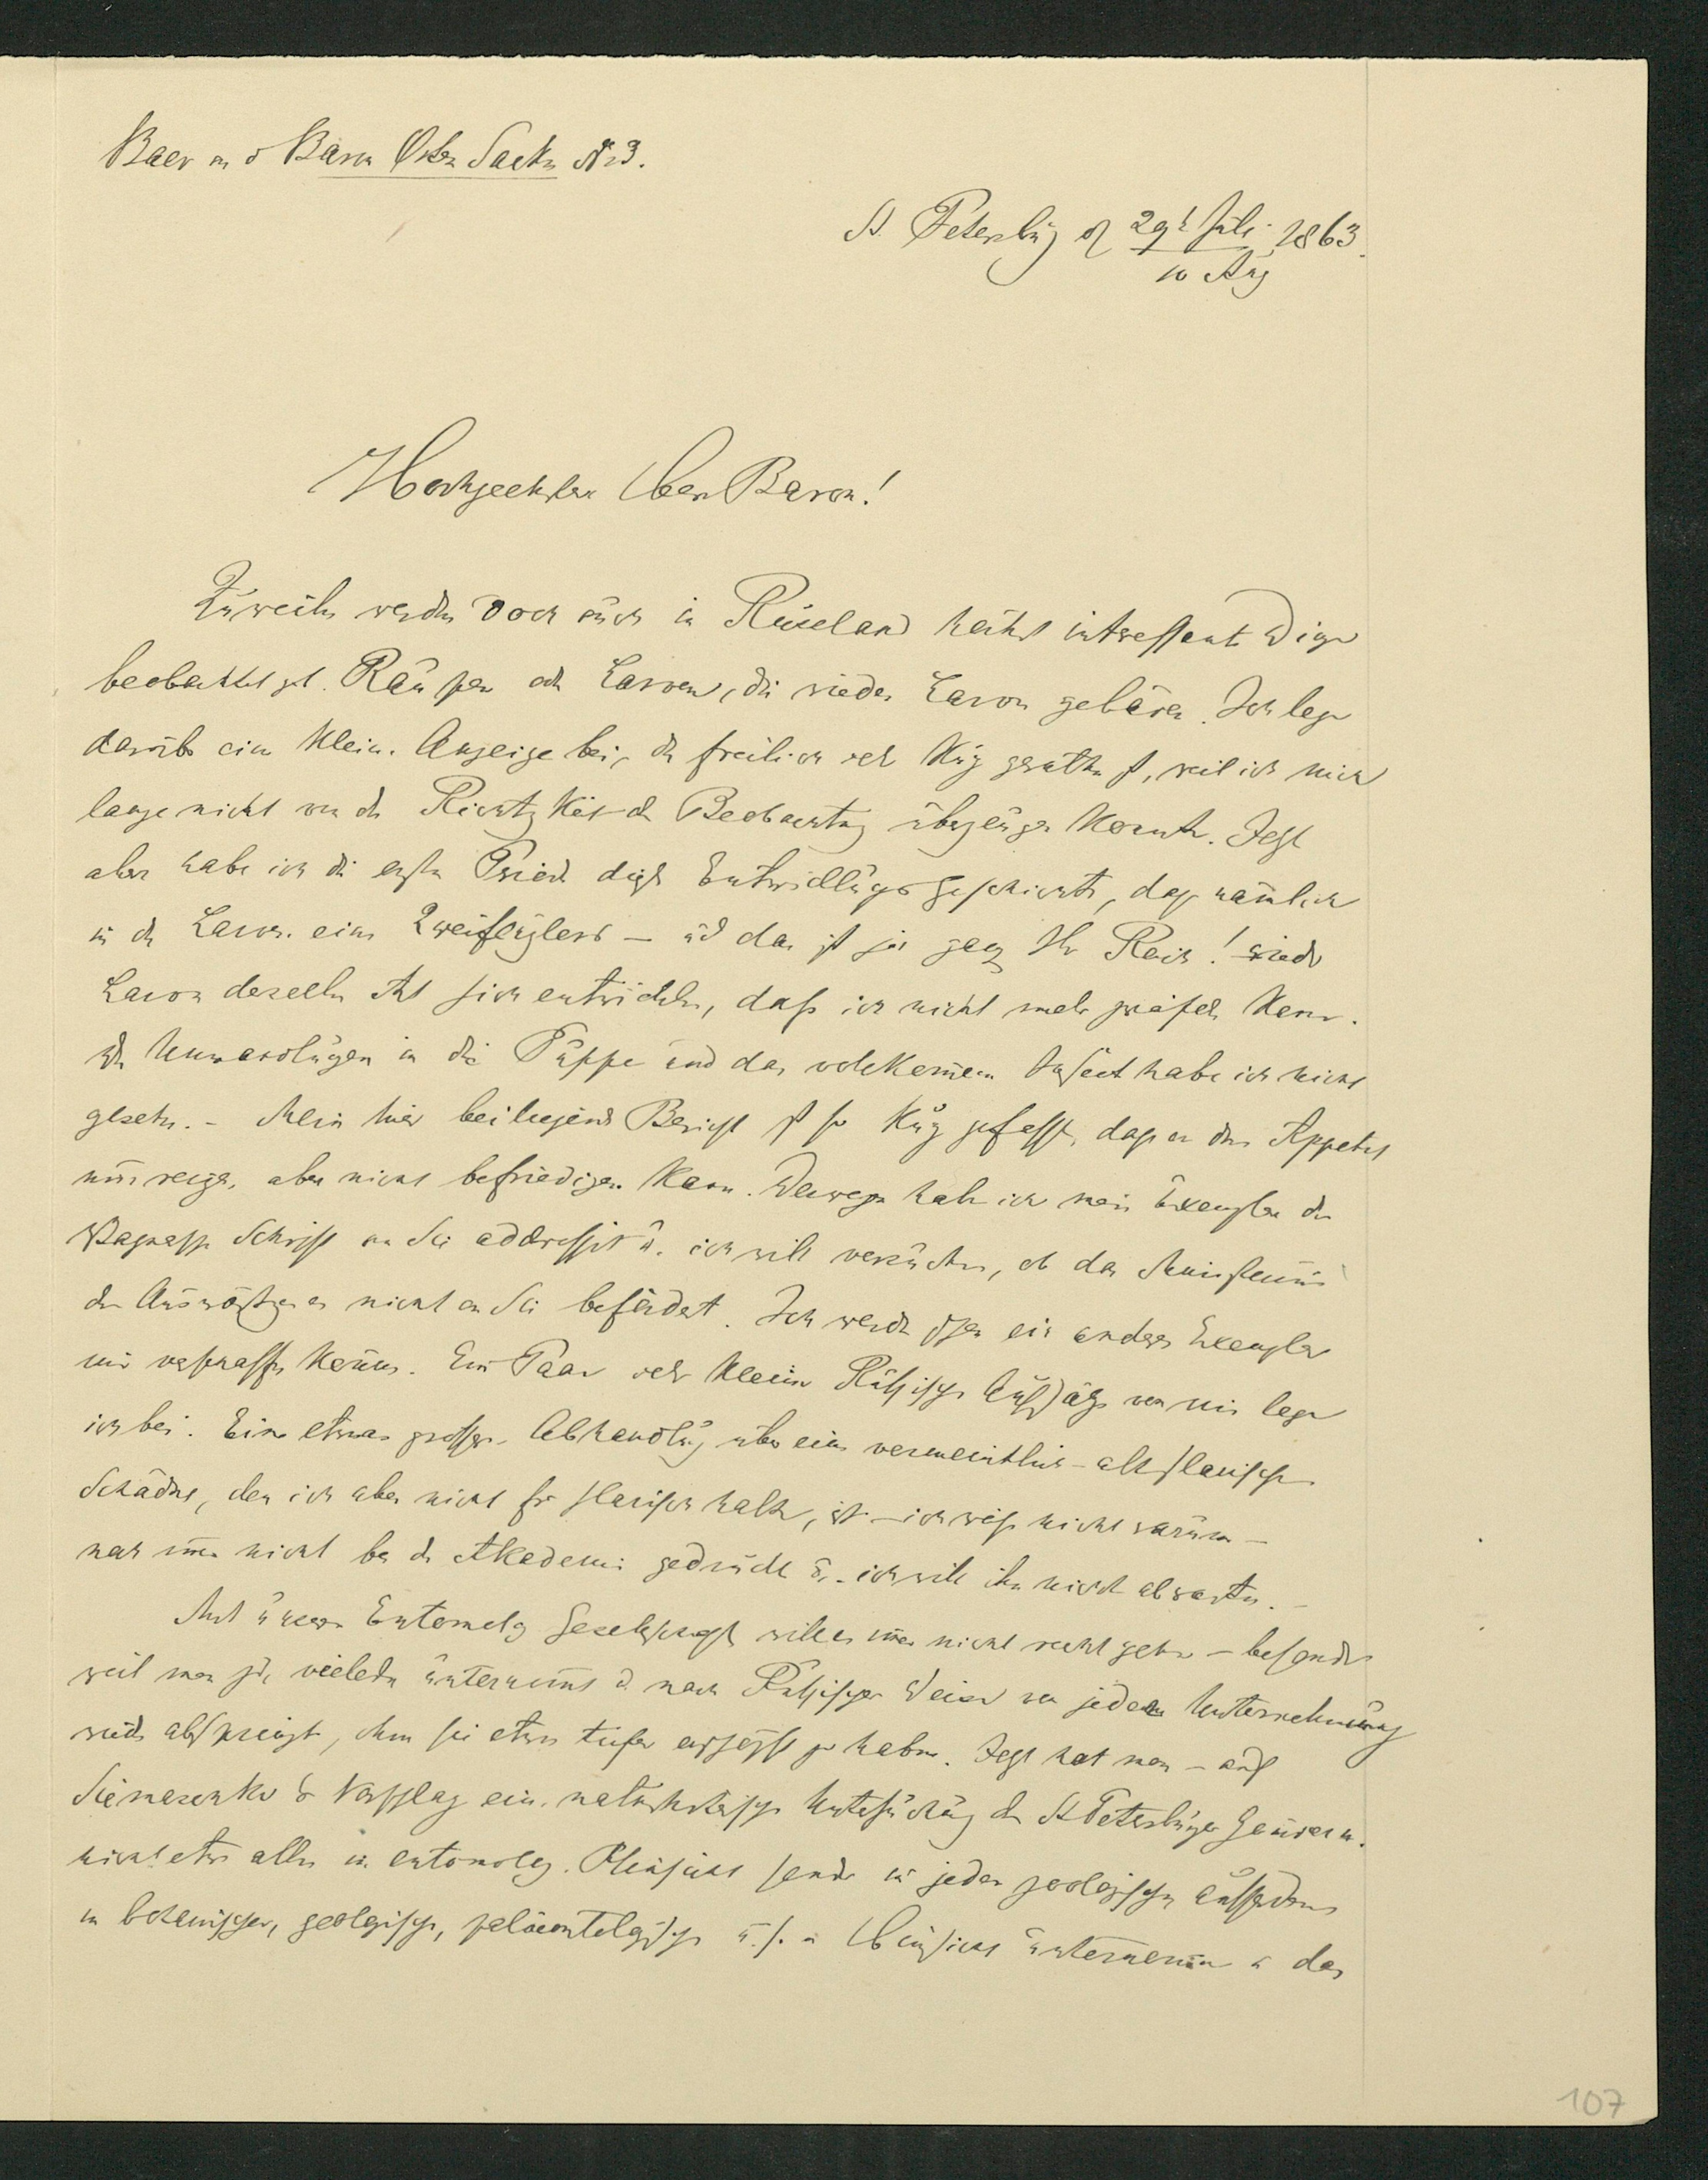 Baer an d Baron Osten Sacken № 3.
St. Petersburg d 29t Juli 1863.
10 Aug
Hochgeehrter Herr Baron!
Zuweilen werden doch auch in Russland höchst interessante Dinge
beobachtet. Raupen oder Larven, die wieder Larven gebären. Ich lege
darüber eine kleine Anzeige bei, die freilich sehr kurz gerathen ist, weil ich mich
lange nicht von der Richtigkeit der Beobachtung überzeugen konnte. Jetzt
aber habe ich die erste Periode dieser Entwicklungsgeschichte, dass nämlich
in der Larve eines Zweiflüglers – und das ist ja ganz Ihr Reich! wieder
Larven derselben Art sich entwickeln, dass ich nicht mehr zweifeln kann.
Die Umwandlungen in die Puppe und das vollkommene Insect habe ich nicht
gesehen. – Mein hier beiliegender Bericht ist so kurz gefasst, dass er den Appetit
nur reizen, aber nicht befriedigen kann. Deswegen habe ich mein Exemplar der
Wagnerschen Schrift an Sie addressirt u. ich will versuchen, ob das Ministerium
des Auswärtigen es nicht an Sie befördert. Ich werde schon ein anderes Exemplar
mir verschaffen können. Ein Paar sehr kleine Russische Aufsätze von mir lege
ich bei. Eine etwas grössere Abhandlung über einen vermeintlich-altslavischen
Schädel, den ich aber nicht für slavisch halte, ist – ich weiss nicht warum –
noch immer nicht bei der Akademie gedruckt u. ich will ihn nicht abwarten. –
Mit unserer Entomolog Gesellschaft will es immer nicht recht gehen – besonders
weil man zu vielerlei unternimmt u. nach Russischer Weise von jeder Unternehmung
wieder abspringt, ohne sie etwas tiefer erfasst zu haben. Jetzt hat man – auf
Siemaschko's Vorschlag eine naturhistorische Untersuchung des St Petersburger Gouvern.
nicht etwa allein in entomolog. Hinsicht sondern in jeder zoologischen ausserdem
in botanischer, geologischer, paläontologischer u. s. w Hinsicht unternommen u das
107